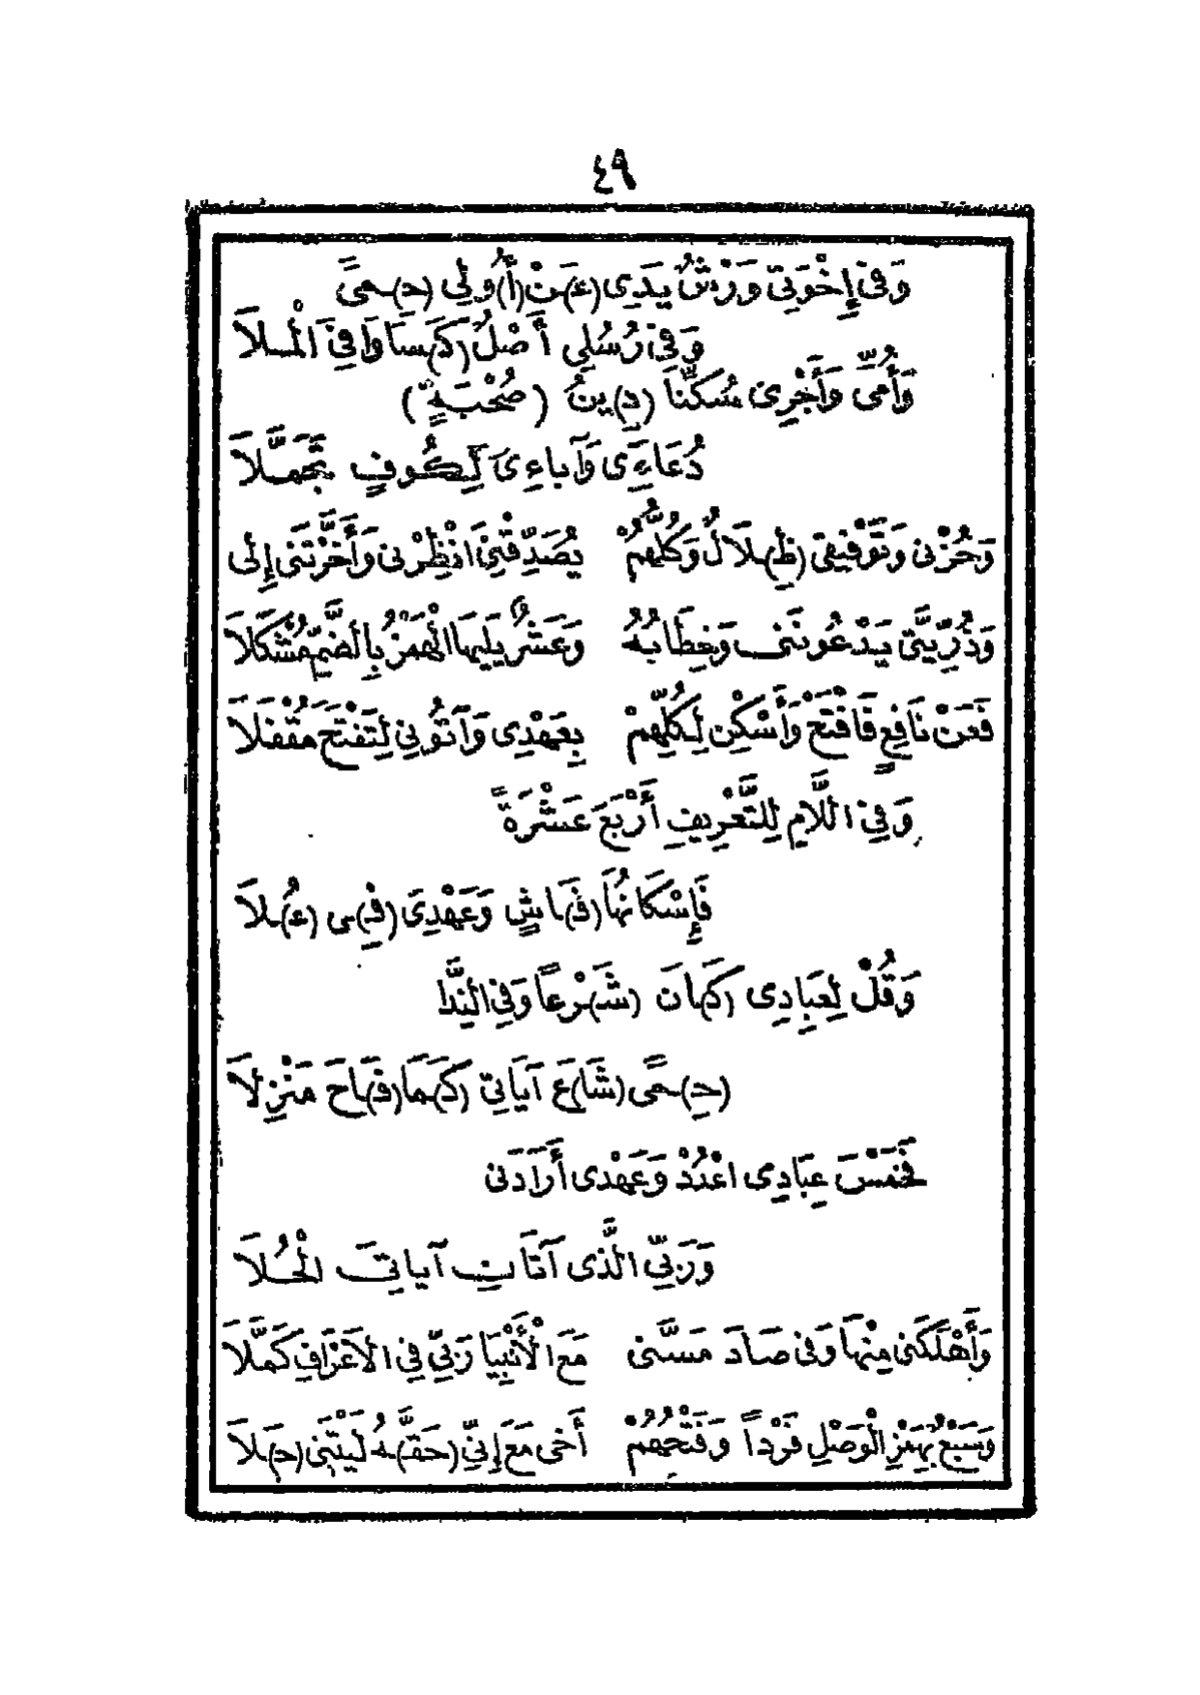 ٤٩
وَفِى إِخْوَتِى وَرْشٌ يَدِى (عَ)ـنْ (أُ)ولِى (حِ)ـمىً
وَفِى رُسُلِى أَصْلٌ (كَ)ـسَا وَافِىَ الْمـلاَ
وَأُمِّى وَأَجْرِى سُكِّنَا (دِ)ينُ (صُحْبَةٍ)
دُعَاءِى وَآباءِى لِكُوفٍ تَجَمَّلاَ
وَحُزْنِى وَتَوْفِيقِى (ظِ)ـلاَلٌ وَكُلُّهُمْ يُصَدِّقْنِىَ انْظِرْنِى وَأَخَّرْتَنِى إِلَى
وَذُرِّيَّتِى يَدْعُونَنِى وَخِطَابُهُ وَعَشْرٌ يَلِيهَا الْهَمْزُ بِالضَّمِّ مُشْكَلاَ
فَعَنْ نَافِعٍ فَافْتَحْ وَأَسْكِنْ لِكُلِّهِمْ بِعَهْدِى وَآتُونِى لِتَفْتَحَ مُقْفَلاَ
وَفِى اللاَّمِ لِلتَّعْرِيفِ أَرْبَعَ عَشْرَةً
فَإِسْكَانُهَا (فَ)ـاشٍ وَعَهْدِىَ (فِ)ـى (عُ)ـلاَ
وَقُلْ لِعِبَادِى (كَ)ـانَ (شَ)ـرْعاً وَفِى النِّدَا
(حِ)ـمًى (شَا)عَ آيَاتِى (كَ)ـمَا (فَ)ـاحَ مَنْزِلاَ
فَخَمْسَ عِبَادِى اعْدُدْ وَعَهْدِى أَرَادَنِى
وَرَبِّى الَّذِى آتَانِ آيَاتِىَ الْحُـلاَ
وَأَهْلَكَنِى مِنْهَا وَفِى صَادَ مَسَّنِى مَعَ الْأَنْبِيَا رَبِّى فِى الْأَعْرَافِ كَمَّلاَ
وَسَبْعٌ بِهَمْزِ الْوَصْلِ فَرْداً وَفَتْحُهُمْ أَخِى مَعَ إِنِّى (حَقُّ)ـهُ لَيْتَنِى (حَ)ـلاَ